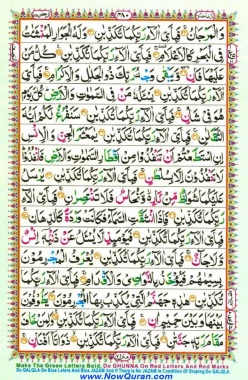 وَالْمَرْجَانُ فَبِاَيِّ اٰلَآءِ رَبِّكُمَا تُكَذِّبٰنِ وَلَهُ الْجَوَارِ الْمُنْشَئٰتُ
فِی الْبَحْرِ كَالْاَعْلَامِ فَبِاَيِّ اٰلَآءِ رَبِّكُمَا تُكَذِّبٰنِ كُلُّ مَنْ
عَلَيْهَا فَانٍ وَّيَبْقٰى وَجْهُ رَبِّكَ ذُو الْجَلٰلِ وَالْاِكْرَامِ فَبِاَيِّ
اٰلَآءِ رَبِّكُمَا تُكَذِّبٰنِ يَسْئَلُهٗ مَنْ فِی السَّمٰوٰتِ وَالْاَرْضِ كُلَّ يَوْمٍ
هُوَ فِیْ شَاْنٍ فَبِاَيِّ اٰلَآءِ رَبِّكُمَا تُكَذِّبٰنِ سَنَفْرُغُ لَكُمْ اَيُّهَ
الثَّقَلٰنِ فَبِاَيِّ اٰلَآءِ رَبِّكُمَا تُكَذِّبٰنِ يٰمَعْشَرَ الْجِنِّ وَالْاِنْسِ
اِنِ اسْتَطَعْتُمْ اَنْ تَنْفُذُوْا مِنْ اَقْطَارِ السَّمٰوٰتِ وَالْاَرْضِ فَانْفُذُوْا
لَا تَنْفُذُوْنَ اِلَّا بِسُلْطٰنٍ فَبِاَيِّ اٰلَآءِ رَبِّكُمَا تُكَذِّبٰنِ يُرْسَلُ
عَلَيْكُمَا شُوَاظٌ مِّنْ نَّارٍ وَّنُحَاسٌ فَلَا تَنْتَصِرٰنِ فَبِاَيِّ اٰلَآءِ
رَبِّكُمَا تُكَذِّبٰنِ فَاِذَا انْشَقَّتِ السَّمَآءُ فَكَانَتْ وَرْدَةً كَالدِّهَانِ
فَبِاَيِّ اٰلَآءِ رَبِّكُمَا تُكَذِّبٰنِ فَيَوْمَئِذٍ لَّا يُسْئَلُ عَنْ ذَنْبِهٖٓ اِنْسٌ
وَّلَا جَآنٌّ فَبِاَيِّ اٰلَآءِ رَبِّكُمَا تُكَذِّبٰنِ يُعْرَفُ الْمُجْرِمُوْنَ
بِسِيْمٰهُمْ فَيُؤْخَذُ بِالنَّوَاصِیْ وَالْاَقْدَامِ فَبِاَيِّ اٰلَآءِ رَبِّكُمَا
تُكَذِّبٰنِ هٰذِهٖ جَهَنَّمُ الَّتِیْ يُكَذِّبُ بِهَا الْمُجْرِمُوْنَ يَطُوْفُوْنَ
بَيْنَهَا وَبَيْنَ حَمِيْمٍ اٰنٍ فَبِاَيِّ اٰلَآءِ رَبِّكُمَا تُكَذِّبٰنِ وَلِمَنْ خَافَ
مَقَامَ رَبِّهٖ جَنَّتٰنِ فَبِاَيِّ اٰلَآءِ رَبِّكُمَا تُكَذِّبٰنِ
Make The Green Letters Bold, Do GHUNNA On Red Letters And Red Marks
www.NowQuran.com